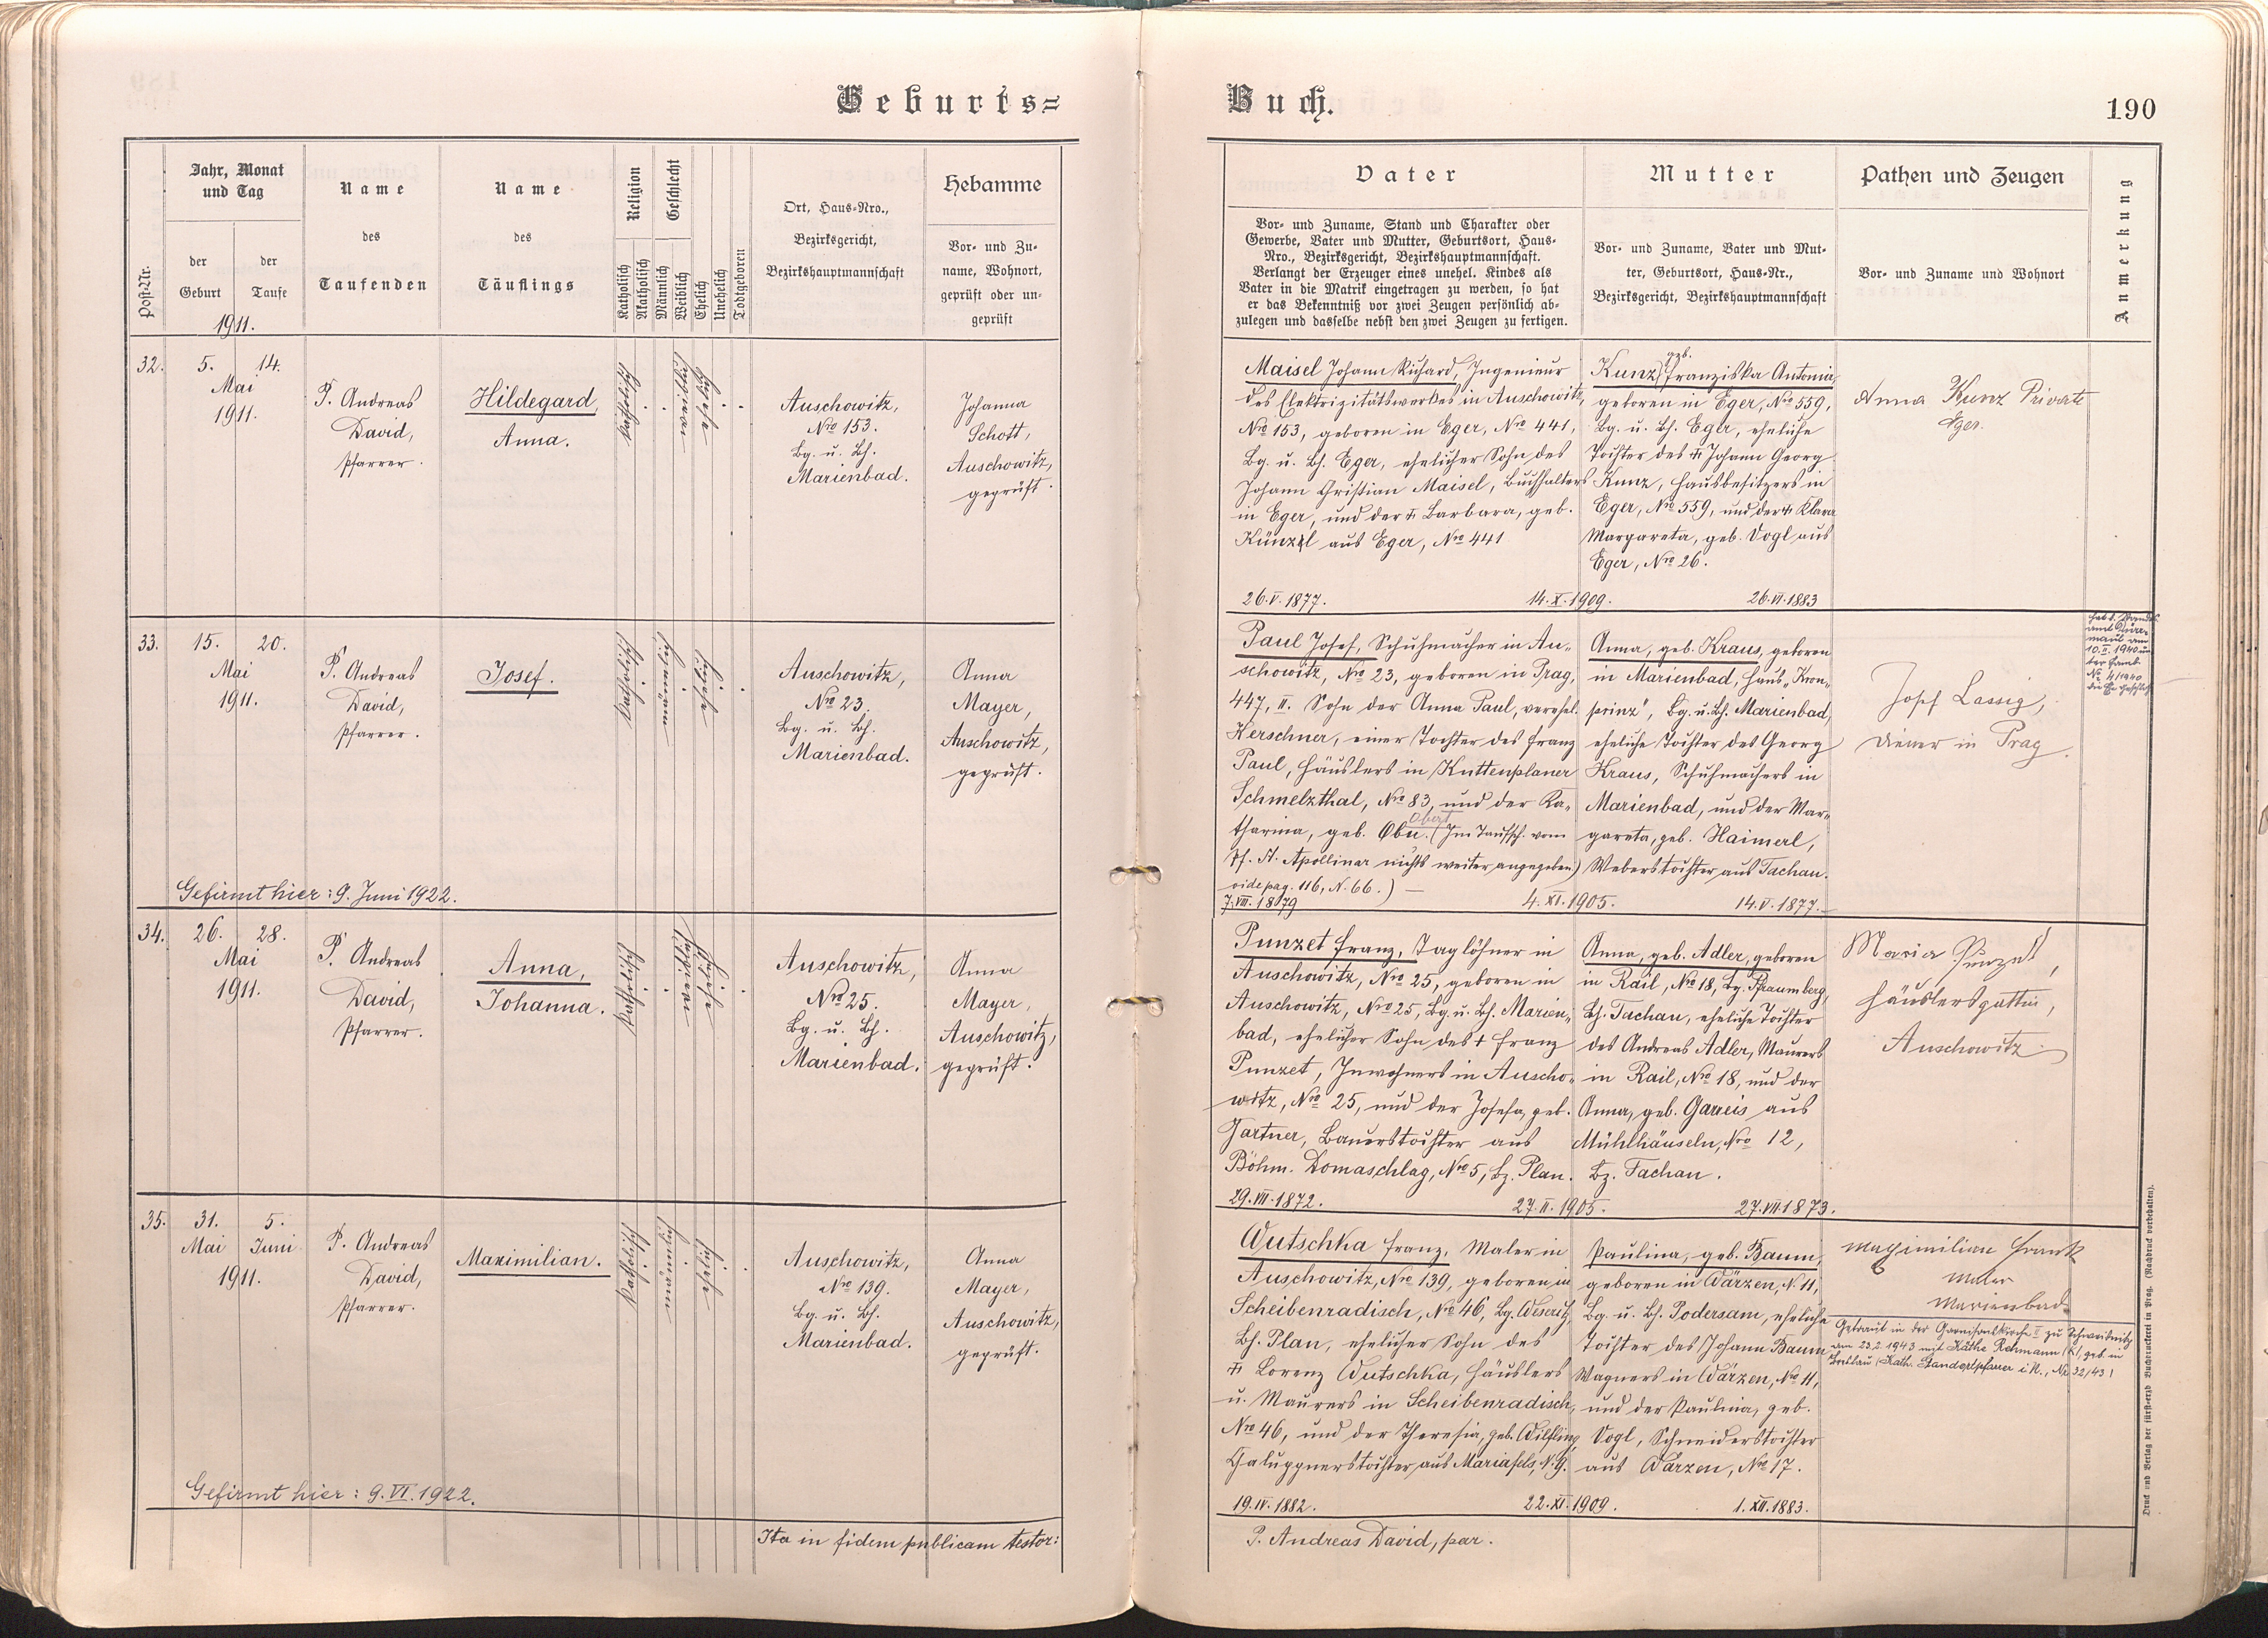 Geburts=
Buch.
190
Post-Nr.
Jahr, Monat
und Tag
der
Geburt
der
Taufe
1911.
Name
des
Taufenden
Name
des
Täuflings
Religion
Katholisch
Akatholisch
Geschlecht
Männlich
Weiblich
Ehelich
Unehelich
Todtgeboren
Ort, Haus-Nro.,
Bezirksgericht,
Bezirkshauptmannschaft
Hebamme
Vor- und Zu-
name, Wohnort,
geprüft oder un-
geprüft
Vater
Vor- und Zuname, Stand und Charakter oder
Gewerbe, Vater und Mutter, Geburtsort, Haus-
Nro., Bezirksgericht, Bezirkshauptmannschaft.
Verlangt der Erzeuger eines unehel. Kindes als
Vater in die Matrik eingetragen zu werden, so hat
er das Bekenntniß vor zwei Zeugen persönlich ab-
zulegen und dasselbe nebst den zwei Zeugen zu fertigen.
Mutter
Vor- und Zuname, Vater und Mut-
ter, Geburtsort, Haus-Nr.,
Bezirksgericht, Bezirkshauptmannschaft
Pathen und Zeugen
Vor- und Zuname und Wohnort
Anmerkung
32.
5. 14.
Mai
1911.
P. Andreas
David,
Pfarrer.
Hildegard,
Anna.
Katholisch
Auschowitz,
Nro 153.
Bg. u. Bh.
Marienbad.
Johanna
Schott,
Auschowitz,
geprüft.
Maisel Johann Richard, Ingenieur
des Elektrizitätswerkes in Auschowitz,
Nro 153, geboren in Eger, Nro 441,
Bg. u. Bh. Eger, ehelicher Sohn des
Johann Christian Maisel, Buchhalters
in Eger, und der † Barbara, geb.
Künzel aus Eger, Nro 441
26.V.1877.
14.X.1909.
geb.
Kunz Franziska Antonia,
geboren in Eger, Nro 559,
Bg. u. Bh. Eger, eheliche
Tochter des † Johann Georg
Kunz, Hausbesitzers in
Eger, Nro 559, und der † Klara
Margareta, geb. Vogl aus
Eger, Nro 26.
26.VI.1883
Anna Kunz Private
Eger.
33.
15. 20.
Mai
1911.
P. Andreas
David,
Pfarrer.
Josef.
Katholisch
Auschowitz,
Nro 23.
Bg. u. Bh.
Marienbad.
Anna
Mayer,
Auschowitz,
geprüft.
Gefirmt hier: 9. Juni 1922.
Paul Josef, Schuhmacher in Au-
schowitz, Nro 23, geboren in Prag,
447, II. Sohn der Anna Paul, verehel.
Kerschner, einer Tochter des Franz
Paul, Häuslers in Kuttenplaner
Schmelzthal, Nro 83, und der Ka-
tharina, geb. Obu. (Im Taufsch. vom
Obert
Pf. St. Apollinar nichts weiter angegeben)
vide pag. 116, N. 66.) —
7.VIII.1879
4.XI.1905.
Anna, geb. Kraus, geboren
in Marienbad, Haus „Kron-
prinz", Bg. u. Bh. Marienbad,
eheliche Tochter des Georg
Kraus, Schuhmachers in
Marienbad, und der Mar-
gareta, geb. Haimerl,
Weberstochter aus Tachau.
14.V.1877.
Josef Lassig,
Diener in Prag.
10.II.1940 un-
ter Famb.
No 4/1940
die Ehe geschloss.
34.
26. 28.
Mai
1911.
P. Andreas
David,
Pfarrer.
Anna,
Johanna.
Katholisch
Auschowitz,
Nro 25.
Bg. u. Bh.
Marienbad.
Anna
Mayer,
Auschowitz,
geprüft.
Punzet Franz, Taglöhner in
Auschowitz, Nro 25, geboren in
Auschowitz, Nro 25, Bg. u. Bh. Marien-
bad, ehelicher Sohn des † Franz
Punzet, Inwohners in Auscho-
witz, Nro 25, und der Josefa, geb.
Gartner, Bauerstochter aus
Böhm. Domaschlag, Nro 5, Bz. Plan.
29.VII.1872.
27.II.1905.
Anna, geb. Adler, geboren
in Rail, Nro 18, Bg. Pfraumberg,
Bh. Tachau, eheliche Tochter
des Andreas Adler, Maurers
in Rail, Nro 18, und der
Anna, geb. Gareis aus
Mühlhäuseln, Nro 12,
Bz. Tachau.
27.VII.1873.
Maria Punzet,
Häuslersgattin,
Auschowitz
35.
31. 5.
Mai Juni
1911.
P. Andreas
David,
Pfarrer.
Maximilian.
Katholisch
Auschowitz,
Nro 139.
Bg. u. Bh.
Marienbad.
Anna
Mayer,
Auschowitz,
geprüft.
Gefirmt hier: 9.VI.1922.
Wutschka Franz, Maler in
Auschowitz, Nro 139, geboren in
Scheibenradisch, Nro 46, Bg. Weseritz,
Bh. Plan, ehelicher Sohn des
† Lorenz Wutschka, Häuslers
u. Maurers in Scheibenradisch,
Nro 46, und der Theresia, geb. Wilfling,
Chaluppnerstochter aus Mariafels, N. 9.
19.IV.1882.
22.XI.1909.
Paulina, geb. Baum,
geboren in Wärzen, N. 11,
Bg. u. Bh. Podersam, eheliche
Tochter des Johann Baum
Wagners in Wärzen, Nro 11,
und der Paulina, geb.
Vogl, Schneiderstochter
aus Wärzen, Nro 17.
1.XII.1883.
Maximilian Frank
Maler
Marienbad
Getraut in der Garnisonkirche I zu Schweidnitz
am 23.2.1943 mit Käthe Rehmann, geb. in
Breslau (Kath. Standortpfarrer i. R., Nr 32/43)
Ita in fidem publicam testor:
P. Andreas David, par.
Druck und Verlag der fürst-erzb. Buchdruckerei in Prag. (Nachdruck vorbehalten).